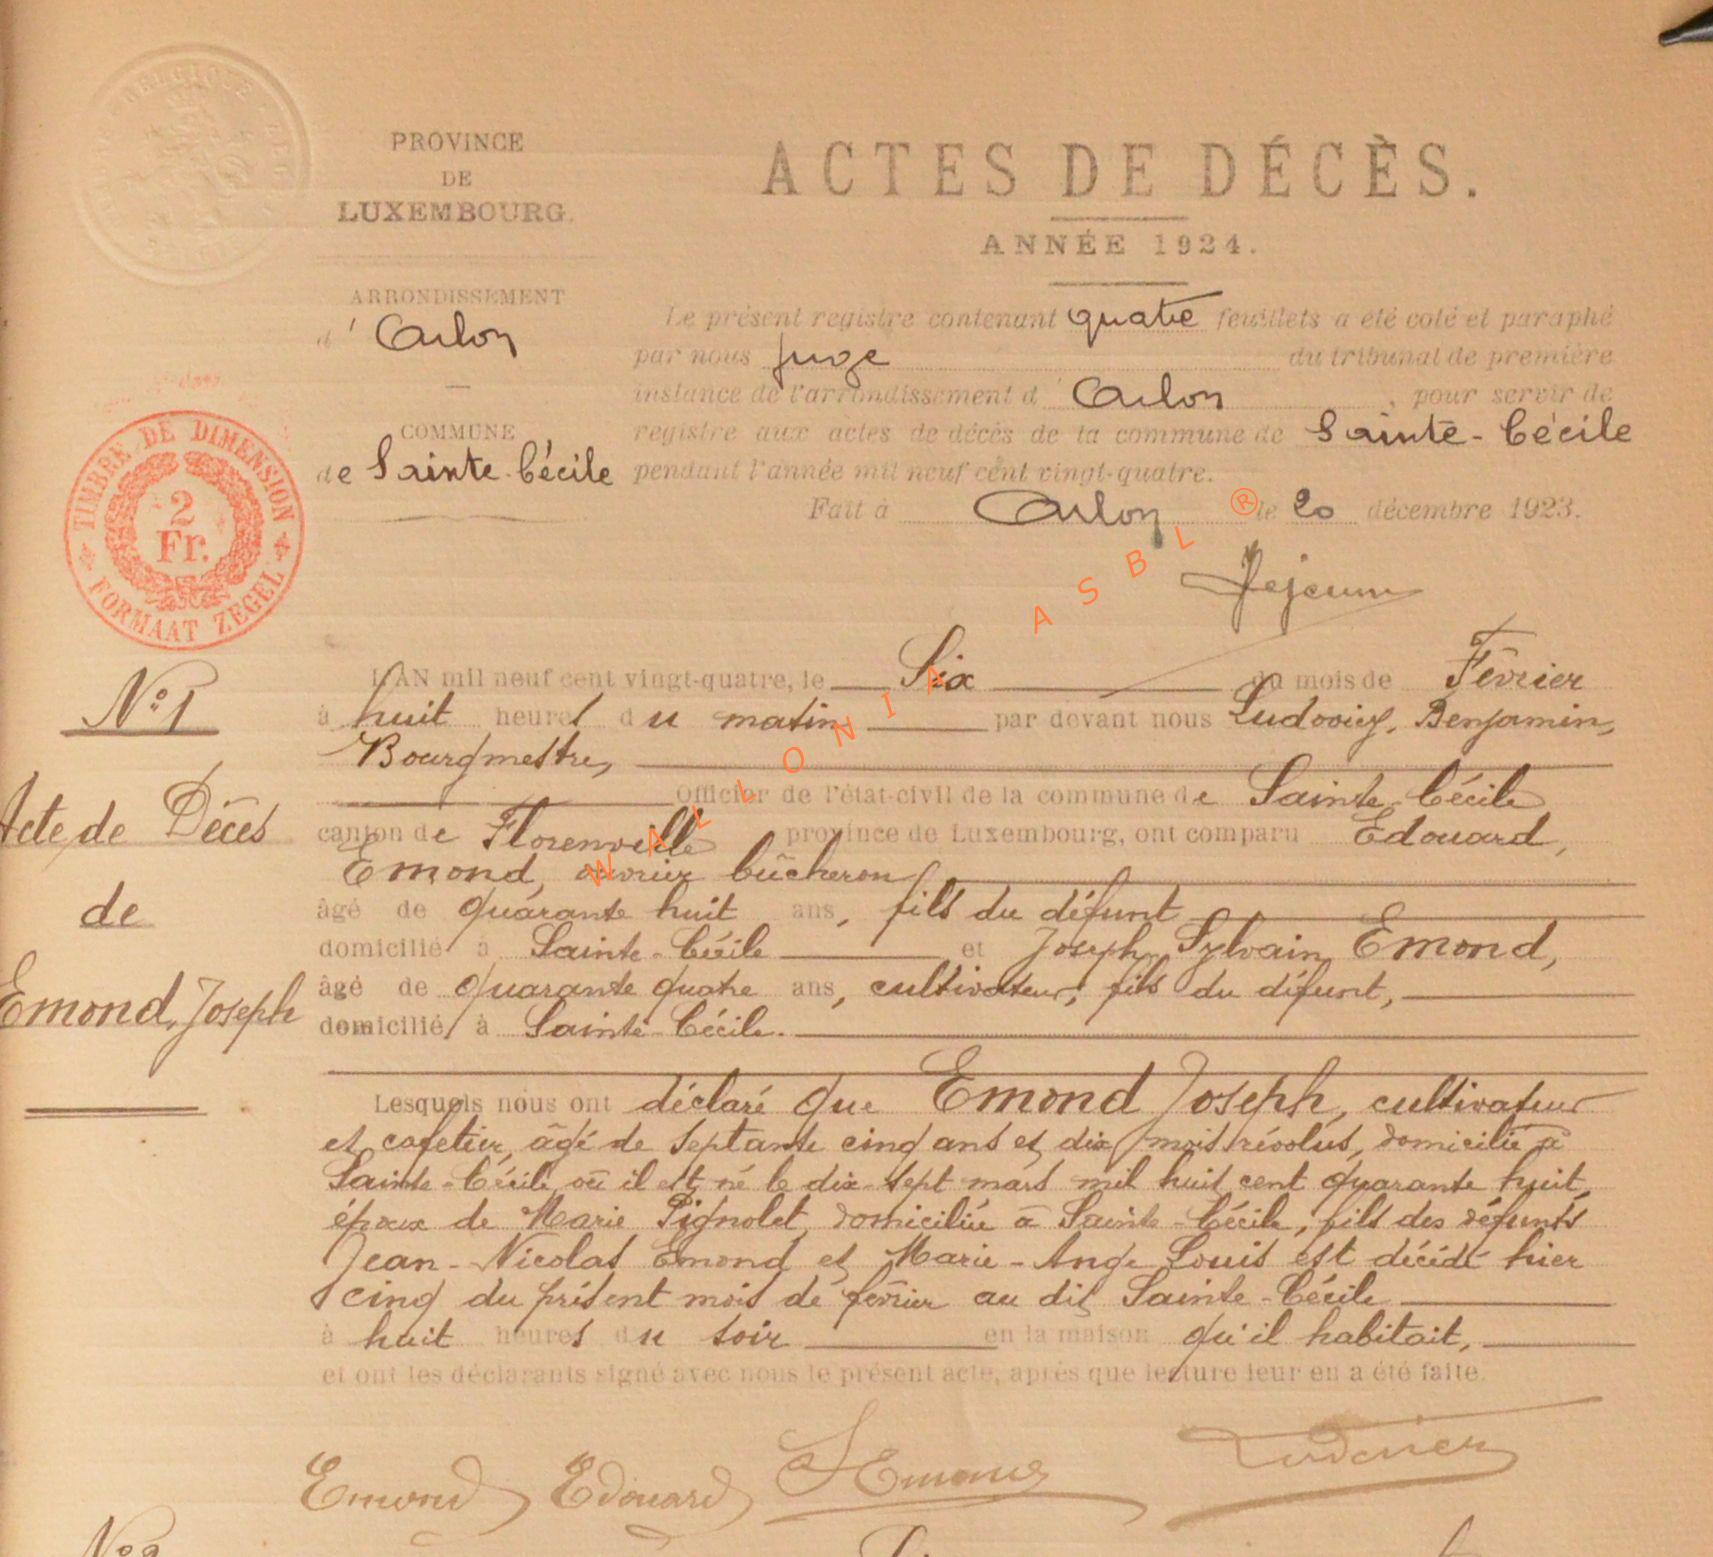 PROVINCE
DE
LUXEMBOURG.
ARRONDISSEMENT
d' Arlon
COMMUNE
de Sainte-Cécile
TIMBRE DE DIMENSION
2
Fr.
FORMAAT ZEGEL
ACTES DE DÉCÈS.
ANNÉE 1924.
Le présent registre contenant quatre feuillets a été coté et paraphé
par nous Juge du tribunal de première
instance de l'arrondissement d' Arlon, pour servir de
registre aux actes de décès de la commune de Sainte-Cécile
pendant l'année mil neuf cent vingt-quatre.
Fait à Arlon le 20 décembre 1923.
WALLONIA ASBL ®
N° 1
Acte de Décès
de
Emond, Joseph
L'AN mil neuf cent vingt-quatre, le Six du mois de Février
à huit heures du matin par devant nous Benjamin,
Bourgmestre,
Officier de l'état-civil de la commune de Sainte-Cécile
canton de Florenville province de Luxembourg, ont comparu Edouard,
Emond, ouvrier bûcheron
âgé de quarante huit ans, fils du défunt
domicilié à Sainte-Cécile et Joseph Sylvain Emond,
âgé de quarante quatre ans, cultivateur, fils du défunt,
domicilié à Sainte-Cécile.
Lesquels nous ont déclaré que Emond Joseph, cultivateur
et cafetier, âgé de septante cinq ans et dix mois révolus, domicilié à
Sainte-Cécile où il est né le dix-sept mars mil huit cent quarante huit,
époux de Marie Pignolet, domiciliée à Sainte-Cécile, fils des défunts
Jean-Nicolas Emond et Marie-Ange Louis est décédé hier
cinq du présent mois de février au dit Sainte-Cécile
à huit heures du soir en la maison qu'il habitait,
et ont les déclarants signé avec nous le présent acte, après que lecture leur en a été faite.
Emond Edouard S Emond
N° 2